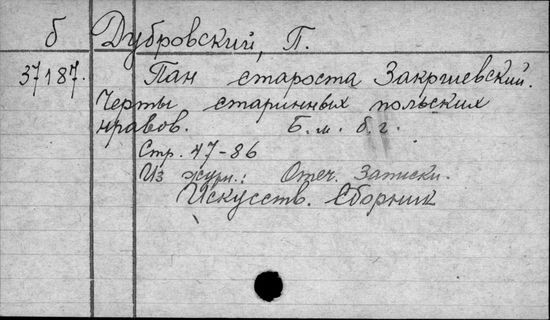 б Дубровский, П.
37187. Пан староста Закргиевский.
Черты старинных польских
нравов. Б.м. б.г.
Стр. 47-86
Из журн.: Отеч. Записки.
Искусств. Сборник